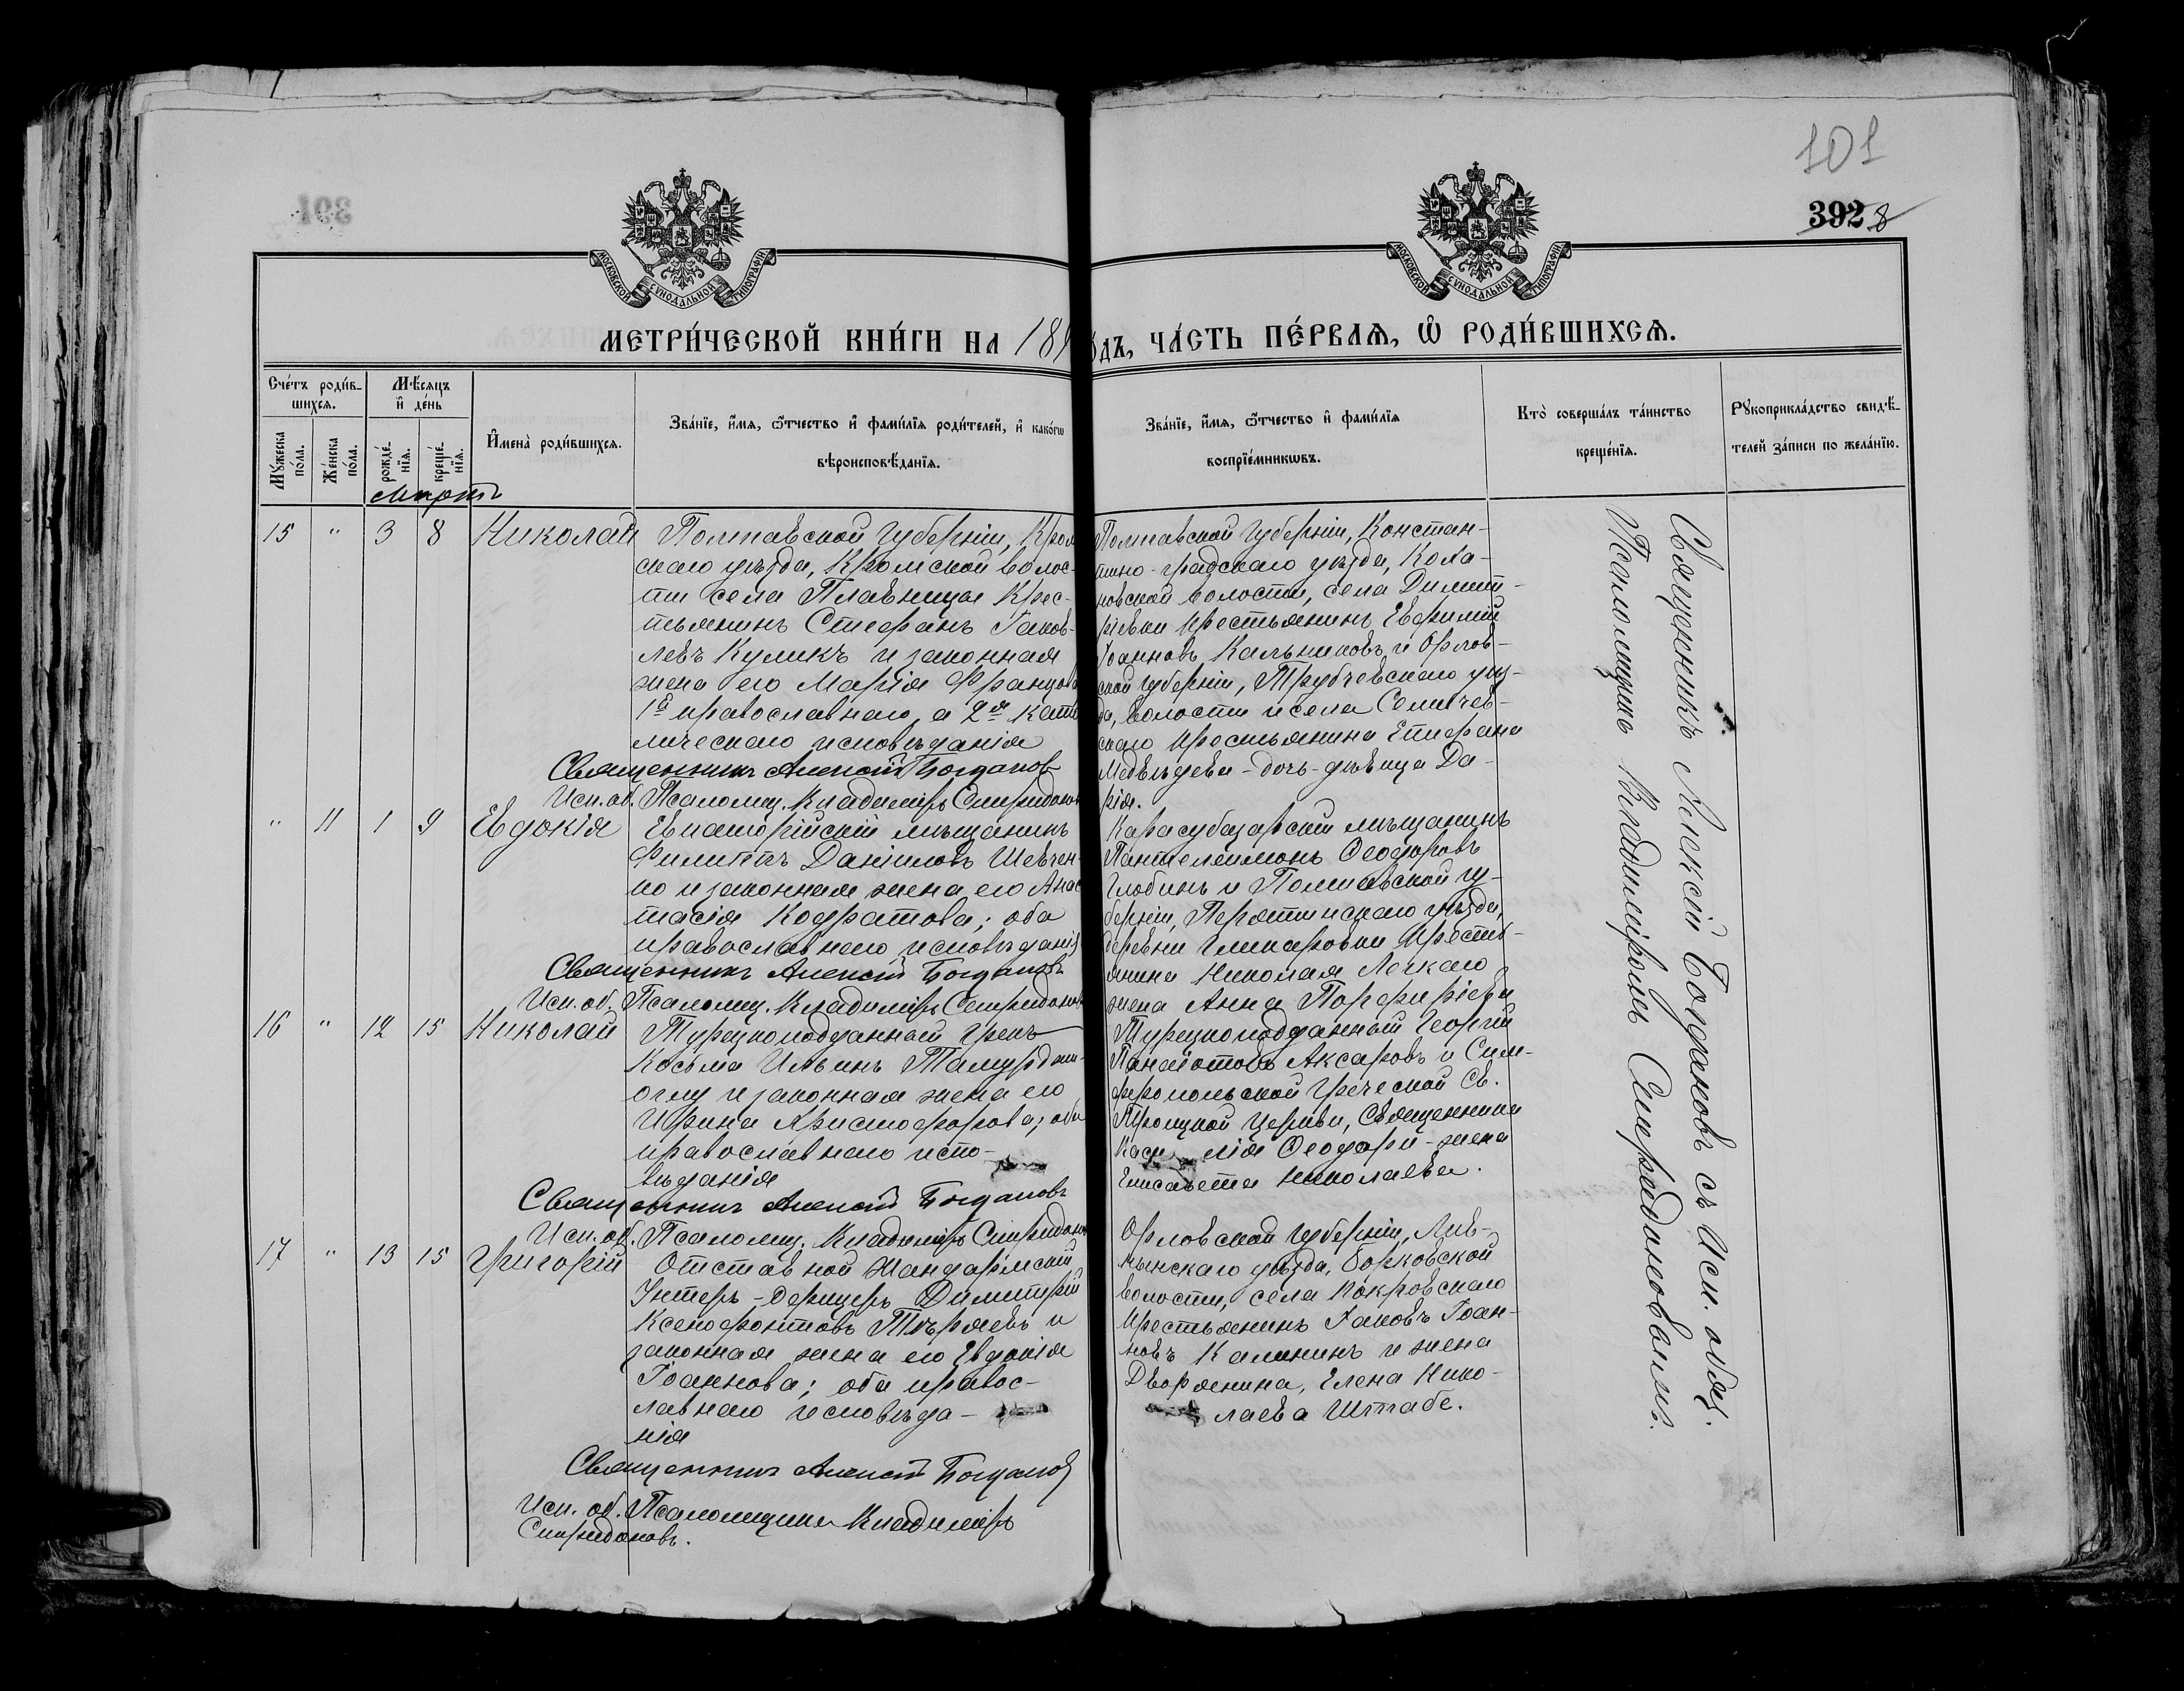 101
392 8
391
МОСКОВСКОЙ СѴНОДАЛЬНОЙ ТИПОГРАФІИ
МОСКОВСКОЙ СѴНОДАЛЬНОЙ ТИПОГРАФІИ
МЕТРИ́ЧЕСКОЙ КНИ́ГИ НА 189
ОДЪ, ЧА́СТЬ ПЕ́РВАѦ, Ѡ РОДИ́ВШИХСѦ.
Сче́тъ роди́в-
шихсѧ.
Мꙋ́жеска по́ла.
Же́нска по́ла.
Мѣ́сѧцъ
и де́нь
рожде́-
нїѧ.
креще́-
нїѧ.
Имена̀ роди́вшихсѧ.
Зва́нїе, и́мѧ, ѻ́тчество и фами́лїѧ роди́телей, и како́гѡ
вѣроисповѣ́данїѧ.
Зва́нїе, и́мѧ, ѻ́тчество и фами́лїѧ
воспрїе́мникѡвъ.
Кто̀ соверша́лъ та́инство
креще́нїѧ.
Рꙋкоприкла́дство свидѣ́-
телей за́писи по жела́нїю.
Мартъ
15 " 3 8 Николай
Полтавской Губерніи, Кром
скаго уѣзда, Кромской волос-
ти села Плавница Крес-
тьянинъ Стефанъ Іаков-
левъ Куликъ и законная
жена его Марія Францова
1й православнаго, а 2я като
лическаго исповѣданія
Священникъ Алексій Богданов
Исп. об. Псаломщ. Владиміръ Спиридонов
Полтавской Губерніи, Констан-
тино-градскаго уѣзда, Коха-
новской волости, села Димит-
ріевки крестьянинъ Евфимій
Іоанновъ Калъниковъ и Орлов-
ской Губерніи, Трубчевскаго уѣз-
да, волости и села Селичев-
скаго крестьянина Стефана
Медвѣдева-дочь-дѣвица Да-
рія.
" 11 1 9 Евдокія
Евпаторійскій мѣщанинъ
Филиппъ Даніиловъ Шевчен-
ко и законная жена его Анас
тасія Кодратова; оба
православнаго исповѣданія
Священникъ Алексій Богдановъ
Исп. об. Псаломщ. Владиміръ Спиридонов
Карасубазарскій мѣщанинъ
Пантелеимонъ Ѳеодоровъ
Глобинъ и Полтавской гу-
берніи, Перятинскаго уѣзда,
деревни крестья-
янина Николая Лечкаго
жена Анна Порфиріева
16 " 12 15 Николай
Турецкоподданный Грекъ
Косьма Ильинъ
оглу и законная жена его
Ирина Христофорова; оба
православнаго испо-
вѣданія
Священникъ Алексій Богдановъ
Исп. об. Псаломщ. Владиміръ Спиридонов
Турецкоподданный Георгій
Панаіотовъ Аксаровъ и Сим-
феропольской Греческой Св.
Троицкой Церкви, Священника
Ѳеодори-жена
Елисавета Николаева.
17 " 13 15 Григорій
Отставной Жандармскій
Унтеръ-Офицеръ Димитрій
Ксенофонтовъ и
законная жена его Евдокія
Іоаннова; оба правос-
лавнаго исповѣда-
нія
Священникъ Алексій Богданов
Исп. об. Псаломщика Владиміръ
Спиридоновъ.
Орловской Губерніи, Лив-
нынскаго уѣзда, Борковской
волости, села Покровскаго
крестьянинъ Іаковъ Іоан-
новъ Калининъ и жена
Дворянина, Елена Нико-
лаева Штабе.
Священникъ Алексій Богдановъ съ Исп. обяз.
Псаломщика Владиміромъ Спиридоновымъ.